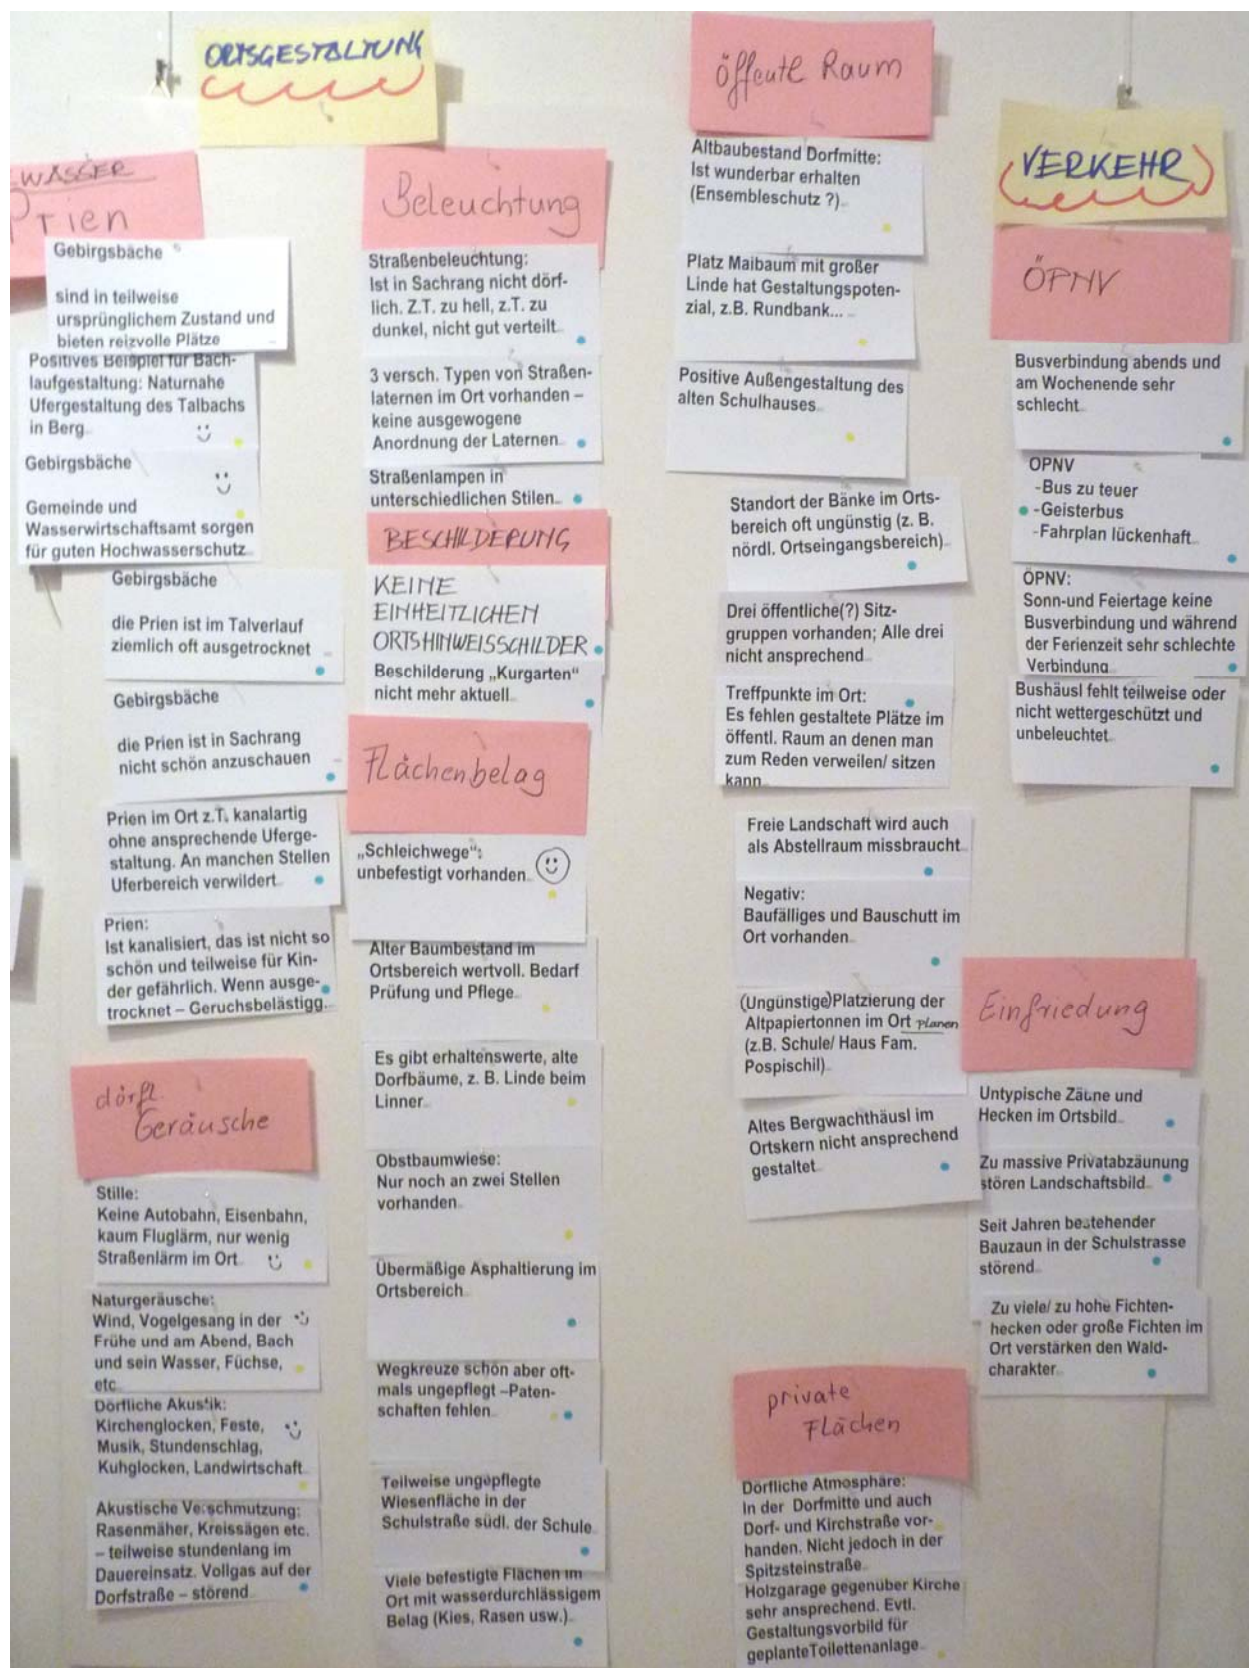 ORTSGESTALTUNG
WASSER
Prien
Gebirgsbäche
sind in teilweise
ursprünglichem Zustand und
bieten reizvolle Plätze
Positives Beispiel für Bach-
laufgestaltung: Naturnahe
Ufergestaltung des Talbachs
in Berg
Gebirgsbäche
Gemeinde und
Wasserwirtschaftsamt sorgen
für guten Hochwasserschutz
Gebirgsbäche
die Prien ist im Talverlauf
ziemlich oft ausgetrocknet
Gebirgsbäche
die Prien ist in Sachrang
nicht schön anzuschauen
Prien im Ort z.T. kanalartig
ohne ansprechende Uferge-
staltung. An manchen Stellen
Uferbereich verwildert
Prien:
Ist kanalisiert, das ist nicht so
schön und teilweise für Kin-
der gefährlich. Wenn ausge-
trocknet – Geruchsbelästigg.
dörfl.
Geräusche
Stille:
Keine Autobahn, Eisenbahn,
kaum Fluglärm, nur wenig
Straßenlärm im Ort
Naturgeräusche:
Wind, Vogelgesang in der
Frühe und am Abend, Bach
und sein Wasser, Füchse,
etc
Dörfliche Akustik:
Kirchenglocken, Feste,
Musik, Stundenschlag,
Kuhglocken, Landwirtschaft
Akustische Verschmutzung:
Rasenmäher, Kreissägen etc.
– teilweise stundenlang im
Dauereinsatz. Vollgas auf der
Dorfstraße – störend
Beleuchtung
Straßenbeleuchtung:
Ist in Sachrang nicht dörf-
lich. Z.T. zu hell, z.T. zu
dunkel, nicht gut verteilt
3 versch. Typen von Straßen-
laternen im Ort vorhanden –
keine ausgewogene
Anordnung der Laternen
Straßenlampen in
unterschiedlichen Stilen
BESCHILDERUNG
KEINE
EINHEITLICHEN
ORTSHINWEISSCHILDER
Beschilderung „Kurgarten“
nicht mehr aktuell
Flächenbelag
„Schleichwege“:
unbefestigt vorhanden
Alter Baumbestand im
Ortsbereich wertvoll. Bedarf
Prüfung und Pflege
Es gibt erhaltenswerte, alte
Dorfbäume, z. B. Linde beim
Linner
Obstbaumwiese:
Nur noch an zwei Stellen
vorhanden
Übermäßige Asphaltierung im
Ortsbereich
Wegkreuze schön aber oft-
mals ungepflegt –Paten-
schaften fehlen
Teilweise ungepflegte
Wiesenfläche in der
Schulstraße südl. der Schule
Viele befestigte Flächen im
Ort mit wasserdurchlässigem
Belag (Kies, Rasen usw.)
öffentl Raum
Altbaubestand Dorfmitte:
Ist wunderbar erhalten
(Ensembleschutz ?)
Platz Maibaum mit großer
Linde hat Gestaltungspoten-
zial, z.B. Rundbank...
Positive Außengestaltung des
alten Schulhauses
Standort der Bänke im Orts-
bereich oft ungünstig (z. B.
nördl. Ortseingangsbereich)
Drei öffentliche(?) Sitz-
gruppen vorhanden; Alle drei
nicht ansprechend
Treffpunkte im Ort:
Es fehlen gestaltete Plätze im
öffentl. Raum an denen man
zum Reden verweilen/ sitzen
kann
Freie Landschaft wird auch
als Abstellraum missbraucht
Negativ:
Baufälliges und Bauschutt im
Ort vorhanden
(Ungünstige)Platzierung der
Altpapiertonnen im Ort planen
(z.B. Schule/ Haus Fam.
Pospischil)
Altes Bergwachthäusl im
Ortskern nicht ansprechend
gestaltet
private
Flächen
Dörfliche Atmosphäre:
In der Dorfmitte und auch
Dorf- und Kirchstraße vor-
handen. Nicht jedoch in der
Spitzsteinstraße
Holzgarage gegenüber Kirche
sehr ansprechend. Evtl.
Gestaltungsvorbild für
geplanteToilettenanlage
VERKEHR
ÖPNV
Busverbindung abends und
am Wochenende sehr
schlecht
ÖPNV
-Bus zu teuer
-Geisterbus
-Fahrplan lückenhaft
ÖPNV:
Sonn-und Feiertage keine
Busverbindung und während
der Ferienzeit sehr schlechte
Verbindung
Bushäusl fehlt teilweise oder
nicht wettergeschützt und
unbeleuchtet
Einfriedung
Untypische Zäune und
Hecken im Ortsbild
Zu massive Privatabzäunung
stören Landschaftsbild
Seit Jahren bestehender
Bauzaun in der Schulstrasse
störend
Zu viele/ zu hohe Fichten-
hecken oder große Fichten im
Ort verstärken den Wald-
charakter